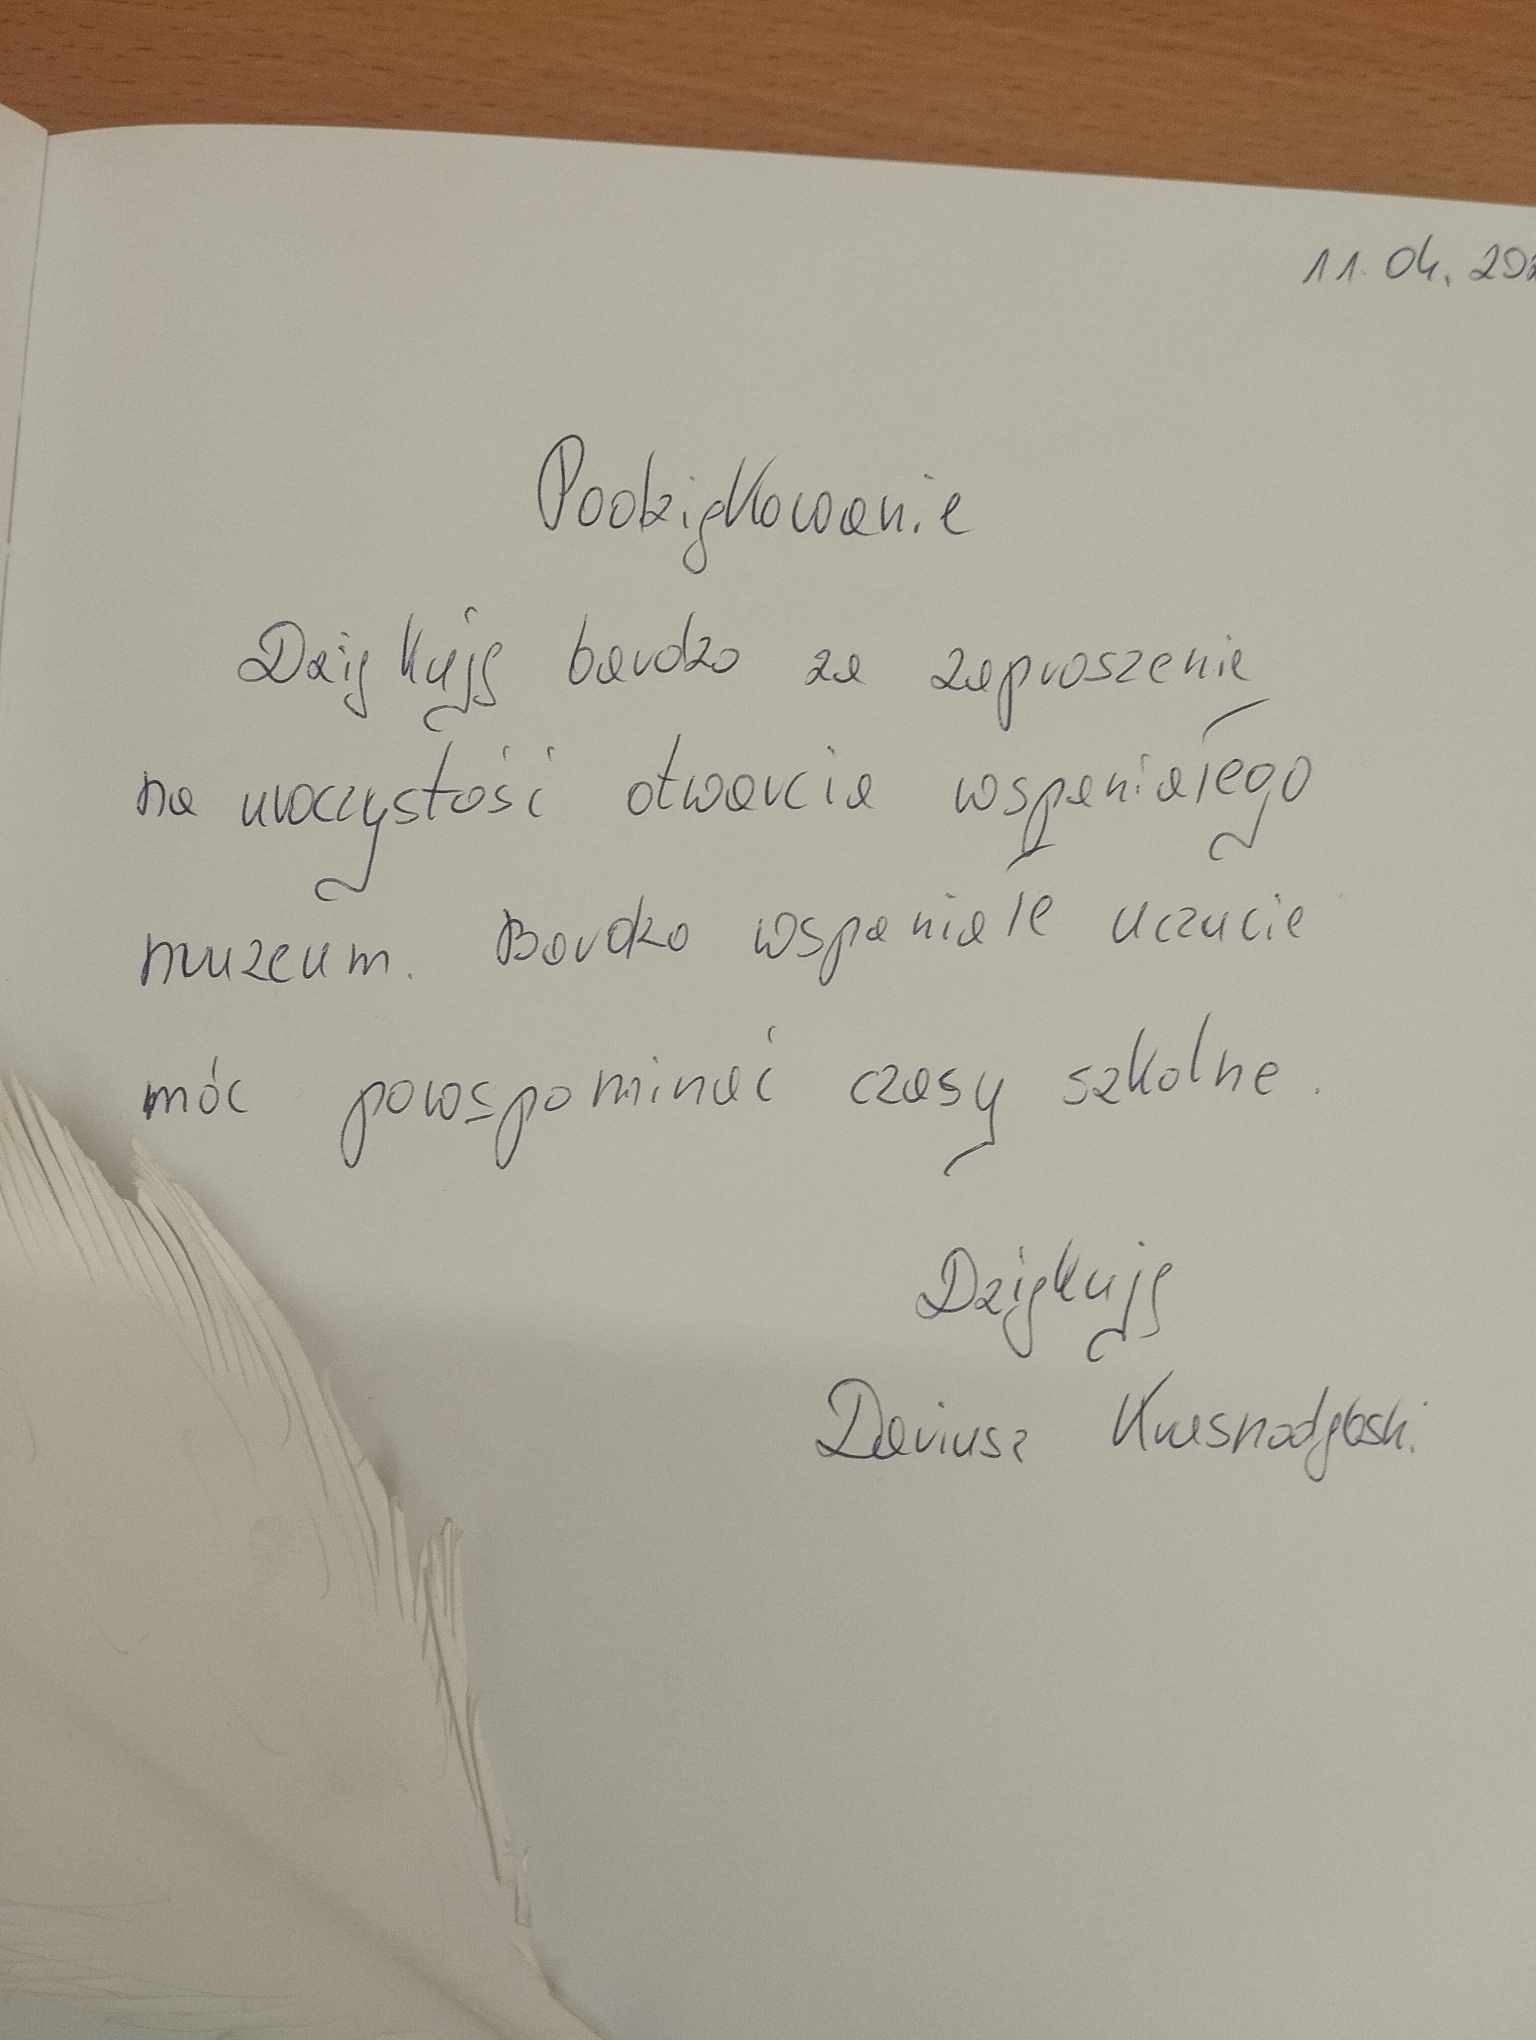 11.04.202
Podziękowanie
Dziękuję bardzo za zaproszenie
na uroczystość otwarcia wspaniałego
muzeum. Bardzo wspaniałe uczucie
móc powspominać czasy szkolne.
Dziękuję
Dariusz